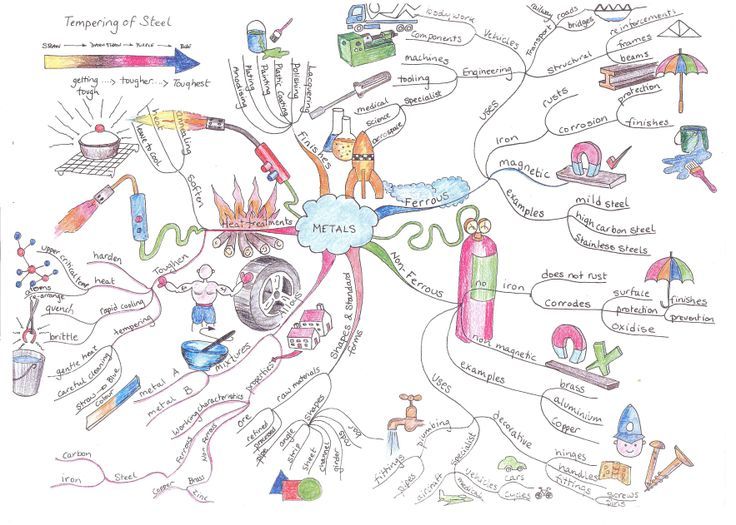 Tempering of Steel
getting tough ...> tougher ...> Toughest
METALS
Finishes
Anrodising
Plating
Painting
Plastic Coating
Polishing
Ferrous
Uses
Engineering
Vehicles
bodywork
components
machines
tooling
specialist
medical
science
aerospace
structural
Transport
railway
roads
bridges
reinforcements
frames
beams
iron
rusts
corrosion
protection
finishes
magnetic
examples
mild steel
high carbon steel
Stainless Steels
Non-Ferrous
no iron
does not rust
Corrodes
surface
protection
oxidise
finishes
prevention
not magnetic
examples
brass
aluminium
copper
Uses
decorative
hinges
handles
fittings
screws
plumbing
fittings
pipes
specialist
aircraft
vehicles
cars
cycles
medical
Shapes & Standard forms
raw materials
Ore
refined
processed
shapes
pipe
angle
strip
sheet
channel
girder
rod
bar
Alloys
mixtures
metal A
metal B
properties
working characteristics
Ferrous
Steel
Carbon
iron
Non Ferrous
Brass
Copper
Zinc
Heat treatments
Soften
annealing
heat
leave to cool
Toughen
harden
heat
upper critical temp
atoms re-arrange
rapid cooling
quench
brittle
tempering
gentle heat
careful cleaning
straw -> Blue
colour